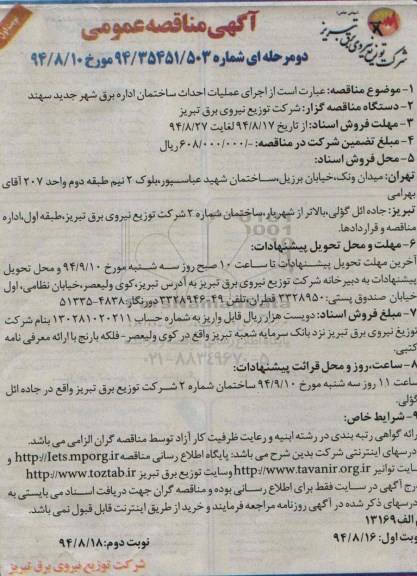 نوبت اول
آگهی مناقصه عمومی
شرکت توزیع نیروی برق تبریز
دو مرحله ای شماره ۹۴/۳۵۴۵۱/۵۰۳ مورخ ۹۴/۸/۱۰
۱- موضوع مناقصه: عبارت است از اجرای عملیات احداث ساختمان اداره برق شهر جدید سهند
۲- دستگاه مناقصه گزار: شرکت توزیع نیروی برق تبریز
۳- مهلت فروش اسناد: از تاریخ ۹۴/۸/۱۷ لغایت ۹۴/۸/۲۷
۴- مبلغ تضمین شرکت در مناقصه: -/۶۰۸/۰۰۰/۰۰۰ ریال
۵- محل فروش اسناد:
تهران: میدان ونک، خیابان برزیل، ساختمان شهید عباسپور، بلوک ۲ نیم طبقه دوم واحد ۲۰۷ آقای
بهرامی
تبریز: جاده ائل گؤلی، بالاتر از شهریار، ساختمان شماره ۲ شرکت توزیع نیروی برق تبریز، طبقه اول، اداره
مناقصه و قراردادها.
۶- مهلت و محل تحویل پیشنهادات:
آخرین مهلت تحویل پیشنهادات تا ساعت ۱۰ صبح روز سه شنبه مورخ ۹۴/۹/۱۰ و محل تحویل
پیشنهادات به دبیرخانه شرکت توزیع نیروی برق تبریز به آدرس تبریز، کوی ولیعصر، خیابان نظامی، اول
خیابان قطران، تلفن ۴۹-۳۳۲۸۹۴۶ دورنگار ۳۳۲۸۹۵۰ صندوق پستی: ۴۸۳۸-۵۱۳۳۵
۷- مبلغ فروش اسناد: دویست هزار ریال قابل واریز به شماره حساب ۱۳۰۲۸۱۰۲۰۲۱۱ بنام شرکت
توزیع نیروی برق تبریز نزد بانک سرمایه شعبه تبریز واقع در کوی ولیعصر- فلکه بارنج با ارائه معرفی نامه
کتبی.
۸- ساعت، روز و محل قرائت پیشنهادات:
ساعت ۱۱ روز سه شنبه مورخ ۹۴/۹/۱۰ ساختمان شماره ۲ شرکت توزیع برق تبریز واقع در جاده ائل
گؤلی.
۹- شرایط خاص:
ارائه گواهی رتبه بندی در رشته ابنیه و رعایت ظرفیت کار آزاد توسط مناقصه گران الزامی می باشد.
آدرسهای اینترنتی شرکت بدین شرح می باشد: پایگاه اطلاع رسانی مناقصه http://Iets.mporg.ir و
سایت توانیر http://www.tavanir.org.ir وسایت توزیع برق تبریز http://www.toztab.ir
درج آگهی در سایت فقط برای اطلاع رسانی بوده و مناقصه گران جهت دریافت اسناد می بایستی به
آدرسهای ذکر شده در آگهی روزنامه مراجعه فرمایند و خرید از طریق اینترنت قابل قبول نمی باشد.
م الف ۱۳۱۶۹
نوبت اول: ۹۴/۸/۱۶ نوبت دوم: ۹۴/۸/۱۸
شرکت توزیع نیروی برق تبریز